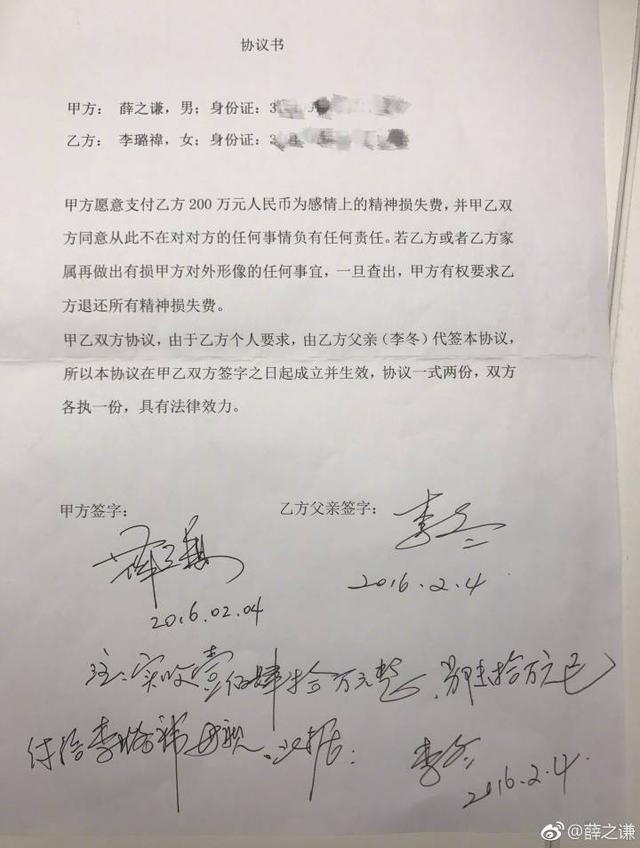 协议书
甲方： 薛之谦，男；身份证：3
乙方： 李璐禕，女；身份证：3
甲方愿意支付乙方 200 万元人民币为感情上的精神损失费，并甲乙双
方同意从此不在对对方的任何事情负有任何责任。若乙方或者乙方家
属再做出有损甲方对外形像的任何事宜，一旦查出，甲方有权要求乙
方退还所有精神损失费。
甲乙双方协议，由于乙方个人要求，由乙方父亲（李冬）代签本协议，
所以本协议在甲乙双方签字之日起成立并生效，协议一式两份，双方
各执一份，具有法律效力。
甲方签字： 乙方父亲签字： 李冬
薛之谦 2016.2.4
2016.02.04
注：实收壹佰肆拾万元整，陆拾万元已
付给李璐禕母亲，以据：
李冬
2016.2.4.
@薛之谦